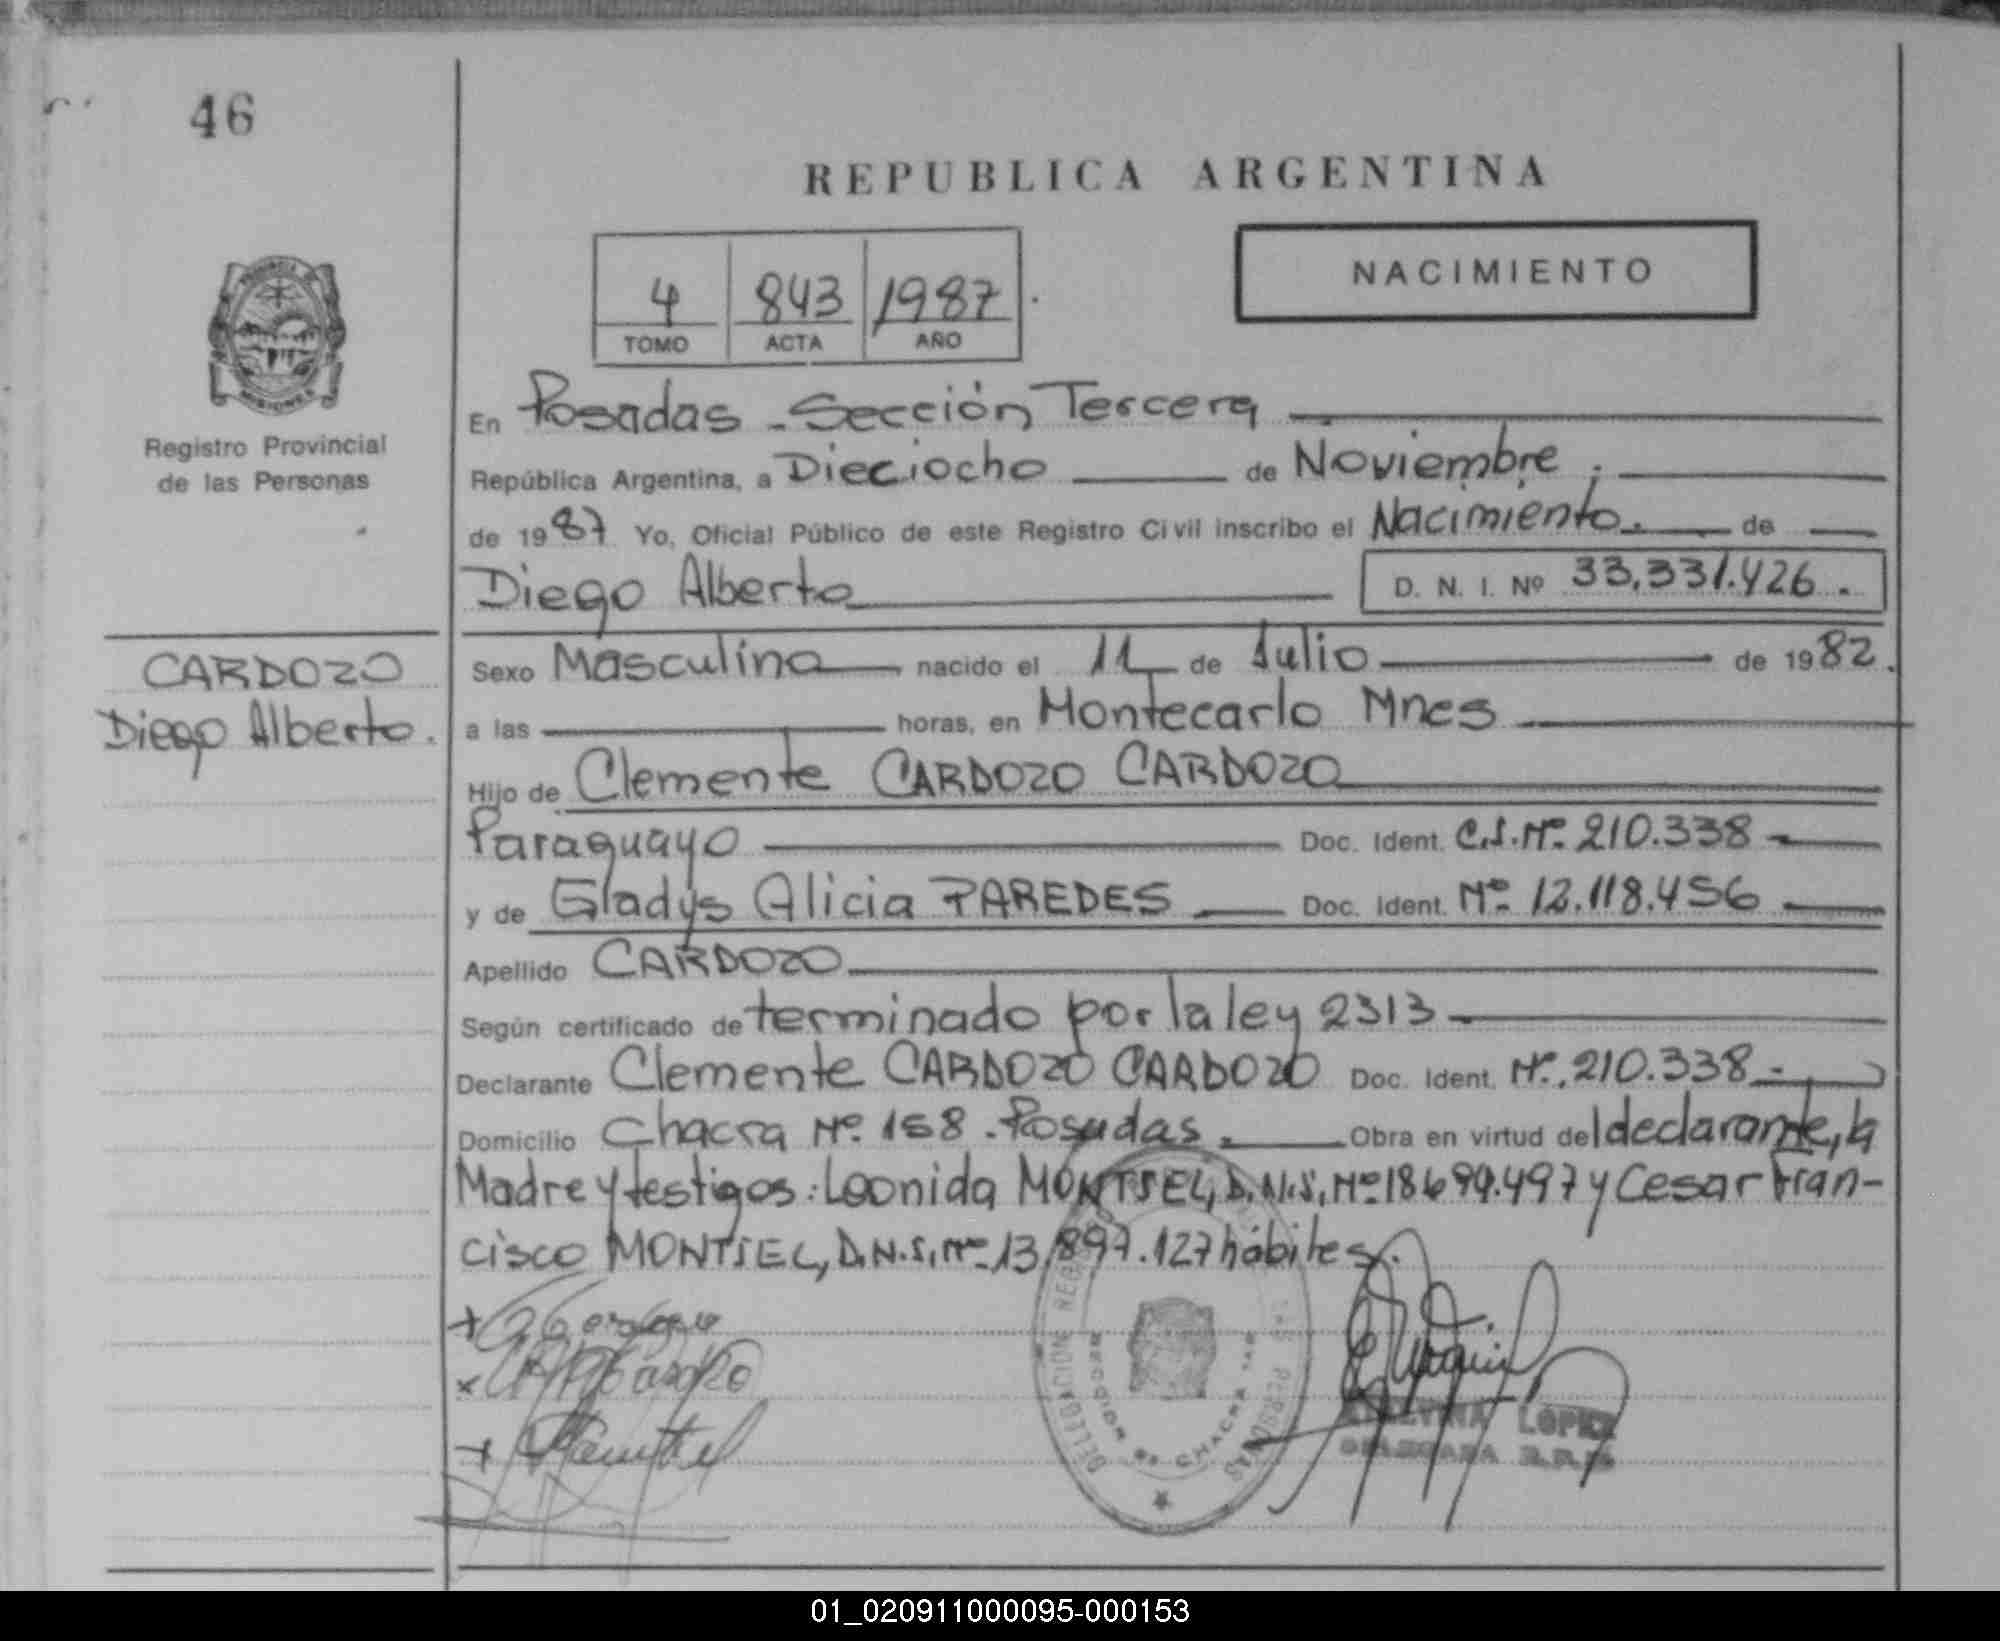 46
REPUBLICA ARGENTINA
4 843 1987
TOMO ACTA AÑO
NACIMIENTO
MISIONES
Registro Provincial
de las Personas
En Posadas - Sección Tercera
República Argentina, a Dieciocho de Noviembre.
de 1987 Yo, Oficial Público de este Registro Civil inscribo el Nacimiento. de
Diego Alberto D. N. I. Nº 33.331.426.
CARDOZO
Diego Alberto.
Sexo Masculino nacido el 11 de Julio de 1982.
a las horas, en Montecarlo Mnes
Hijo de Clemente CARDOZO CARDOZO
Paraguayo Doc. Ident. C.I.Nº 210.338
y de Gladys Alicia PAREDES Doc. Ident. Nº 12.118.456
Apellido CARDOZO
Según certificado de terminado por la ley 2313
Declarante Clemente CARDOZO CARDOZO Doc. Ident. Nº. 210.338
Domicilio Chacra Nº 158. Posadas. Obra en virtud del declarante, la
Madre y testigos: Leonida MONTIEL, D.N.I. Nº 18.699.497 y Cesar Fran-
cisco MONTIEL, D.N.I. Nº 13.897.127 hábiles.
DELEGACION
CHACRA
LOPEZ
01_020911000095-000153